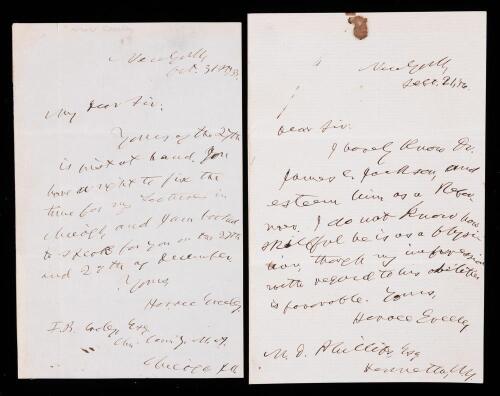 New York
Oct. 31
My Dear Sir:
Yours of the 27th
is just at hand. You
have a right to fix the
time for my lectures in
Chicago, and I am booked
to speak for you on the 27th
and 28th of December.
Yours,
Horace Greeley
Esq.
Chicago, Ill.
New York
Sept. 21,
Dear Sir:
I barely know Dr.
James C. Jackson, and
esteem him as a Refor-
mer. I do not know how
skillful he is as a Physi-
cian, though my impression
with regard to his abilities
is favorable. Yours,
Horace Greeley
M. D. Phillips, Esq
Henrietta, NY